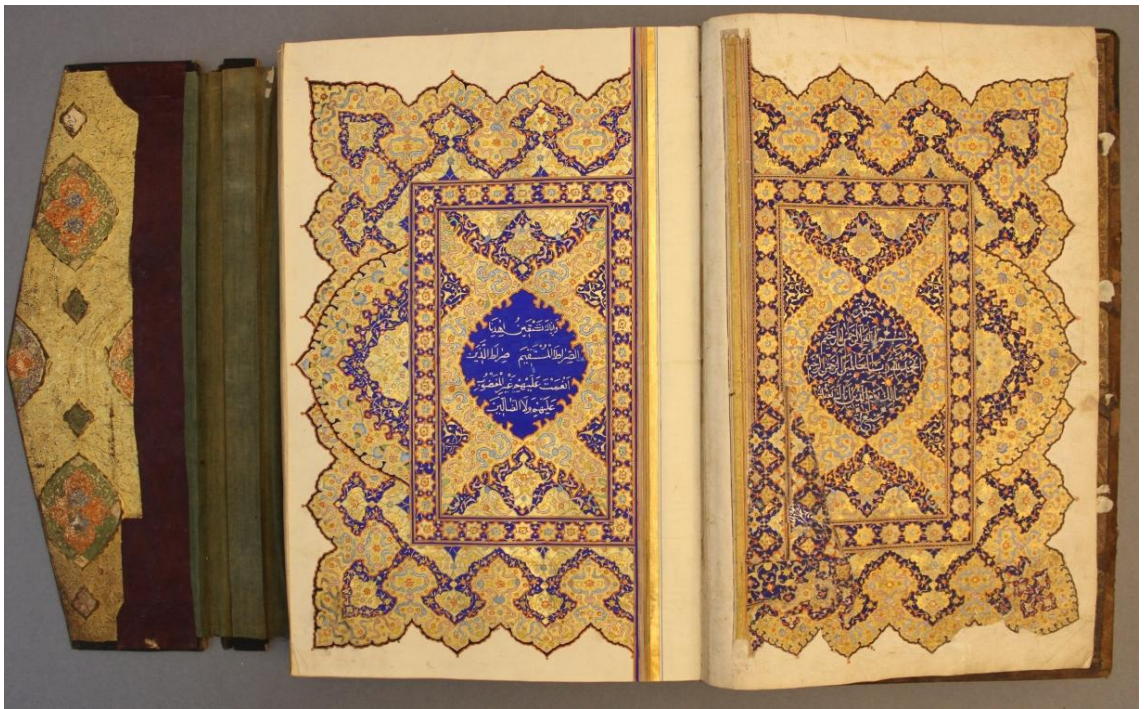 بسم الله الرحمن الرحيم
الحمد لله رب العالمين الرحمن الر
يوم الدين اياك نعبد
واياك نستعين اهدنا
الصراط المستقيم صراط الذين
انعمت عليهم غير المغضوب
عليهم ولا الضالين